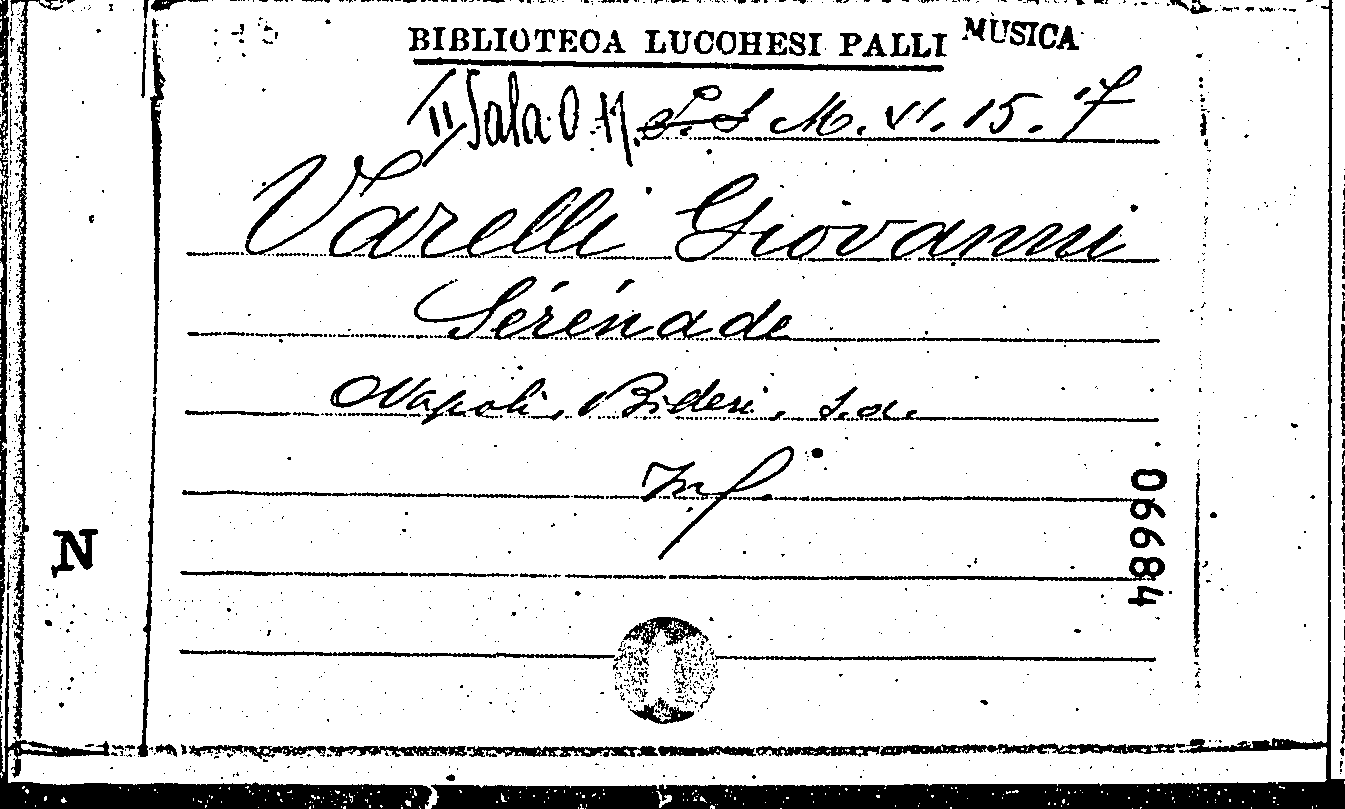 BIBLIOTECA LUCCHESI PALLI MUSICA
II Sala O. 17. S. S M. VI. 15. 7
Varelli Giovanni
Sérénade
Napoli, Bideri, s.a.
Inf.
06684
N